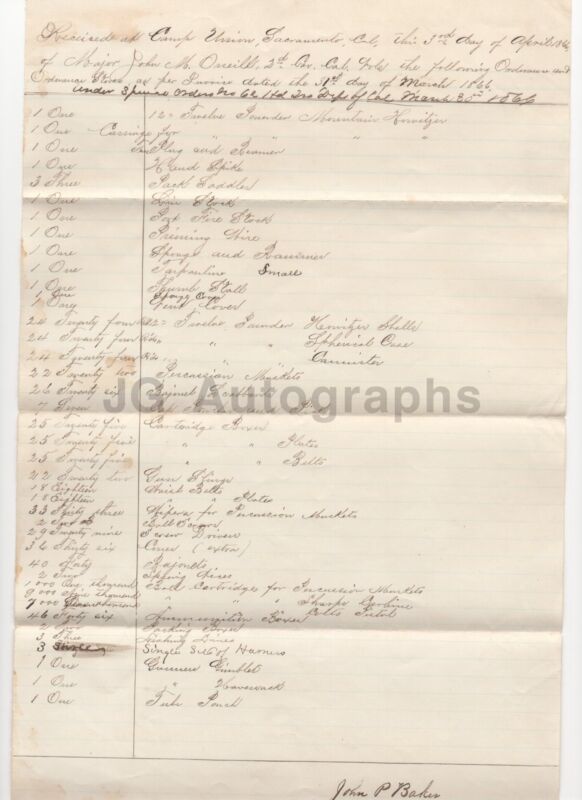 Received at Camp Union, Sacramento, Cal, this 3rd day of April 186
of Major John M. Oneill. 2d Cav. Cal. Vols the following Ordnance and
Ordnance Stores as per Invoice dated the 31st day of March 1866.
under Special Orders No 62 Hd Qrs Dept of Cal March 30th 1866
1 One 12= Twelve Pounder Mountain Howitzer
1 One Carriage for " " " "
1 One Plug and Reamer
1 One Hand Spike
3 Three Pack Saddles
1 One Lin Stock
1 One Port Fire Stock
1 One Priming Wire
1 One Sponge and Rammer
1 One Tarpaulins Small
1 One Thumb Stall
1 One Sponge Cover
1 One Vent Cover
24 Twenty four 12= Twelve Pounder Howitzer Shells
24 Twenty four " " Spherical Case
24 Twenty four " " Cannister
22 Twenty two Percussion Muskets
26 Twenty six Bayonet Scabbards
7 Seven
25 Twenty five Cartridge Boxes
25 Twenty five " " Plates
25 Twenty five " " Belts
22 Twenty two Gun Slings
18 Eighteen Waist Belts
18 Eighteen " " Plates
33 Thirty three Wipers for Percussion Muskets
2 Two Ball Screws
29 Twenty nine Screw Drivers
36 Thirty six Cones (extra)
40 Forty Bayonets
2 Two
1000 One thousand Ball Cartridges for Percussion Muskets
thousand " " Sharps Carbine
7000 Seven thousand " " Colts Pistol
46 Forty six Ammunition Boxes
2 Two Packing Boxes
3 Three Lashing Lines
3 Single Sets of Harness
1 One Gunners Gimblet
1 One " Haversack
1 One Tube Pouch
John P Baker
JG Autographs